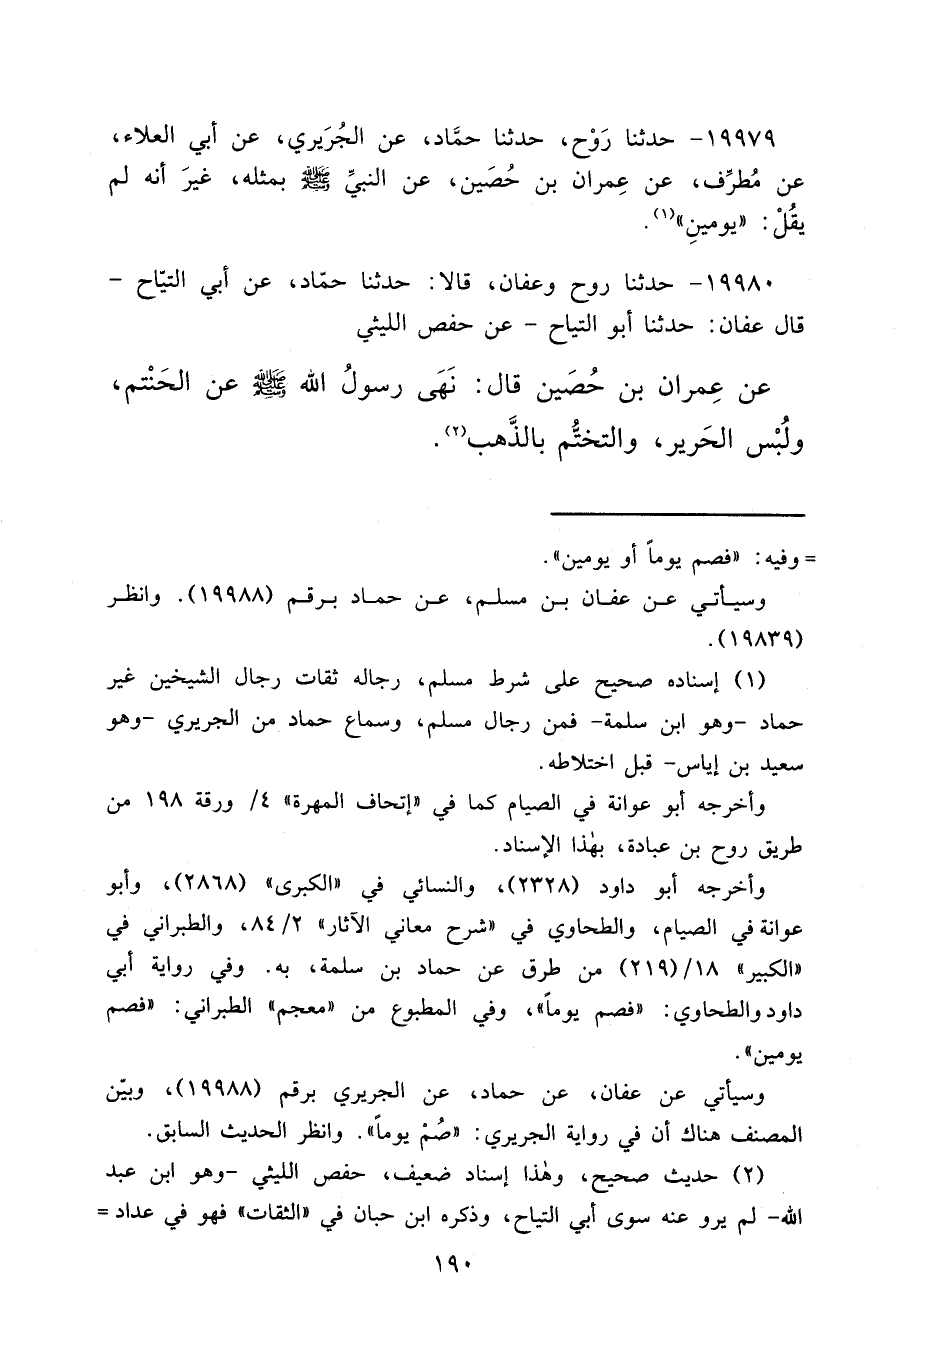 ١٩٩٧٩- حدثنا رَوْح، حدثنا حمَّاد، عن الجُرَيري، عن أبي العلاء،
عن مُطرِّف، عن عِمران بن حُصَين، عن النبيِّ ﷺ بمثله، غيرَ أنه لم
يقُلْ: «يومينِ»(١).
١٩٩٨٠- حدثنا روح وعفان، قالا: حدثنا حمّاد، عن أبي التيّاح -
قال عفان: حدثنا أبو التياح - عن حفص الليثي
عن عِمران بن حُصَين قال: نَهَى رسولُ الله ﷺ عن الحَنْتم،
ولُبْس الحَرير، والتختُّم بالذَّهب(٢).
= وفيه: «فصم يوماً أو يومين».
وسيأتي عن عفان بن مسلم، عن حماد برقم (١٩٩٨٨). وانظر
(١٩٨٣٩).
(١) إسناده صحيح على شرط مسلم، رجاله ثقات رجال الشيخين غير
حماد -وهو ابن سلمة- فمن رجال مسلم، وسماع حماد من الجريري -وهو
سعيد بن إياس- قبل اختلاطه.
وأخرجه أبو عوانة في الصيام كما في «إتحاف المهرة» ٤/ ورقة ١٩٨ من
طريق روح بن عبادة، بهٰذا الإسناد.
وأخرجه أبو داود (٢٣٢٨)، والنسائي في «الكبرى» (٢٨٦٨)، وأبو
عوانة في الصيام، والطحاوي في «شرح معاني الآثار» ٨٤/٢، والطبراني في
«الكبير» ١٨/(٢١٩) من طرق عن حماد بن سلمة، به. وفي رواية أبي
داود والطحاوي: «فصم يوماً»، وفي المطبوع من «معجم» الطبراني: «فصم
يومين».
وسيأتي عن عفان، عن حماد، عن الجريري برقم (١٩٩٨٨)، وبيّن
المصنف هناك أن في رواية الجريري: «صُمْ يوماً». وانظر الحديث السابق.
(٢) حديث صحيح، وهٰذا إسناد ضعيف، حفص الليثي -وهو ابن عبد
الله- لم يرو عنه سوى أبي التياح، وذكره ابن حبان في «الثقات» فهو في عداد =
١٩٠